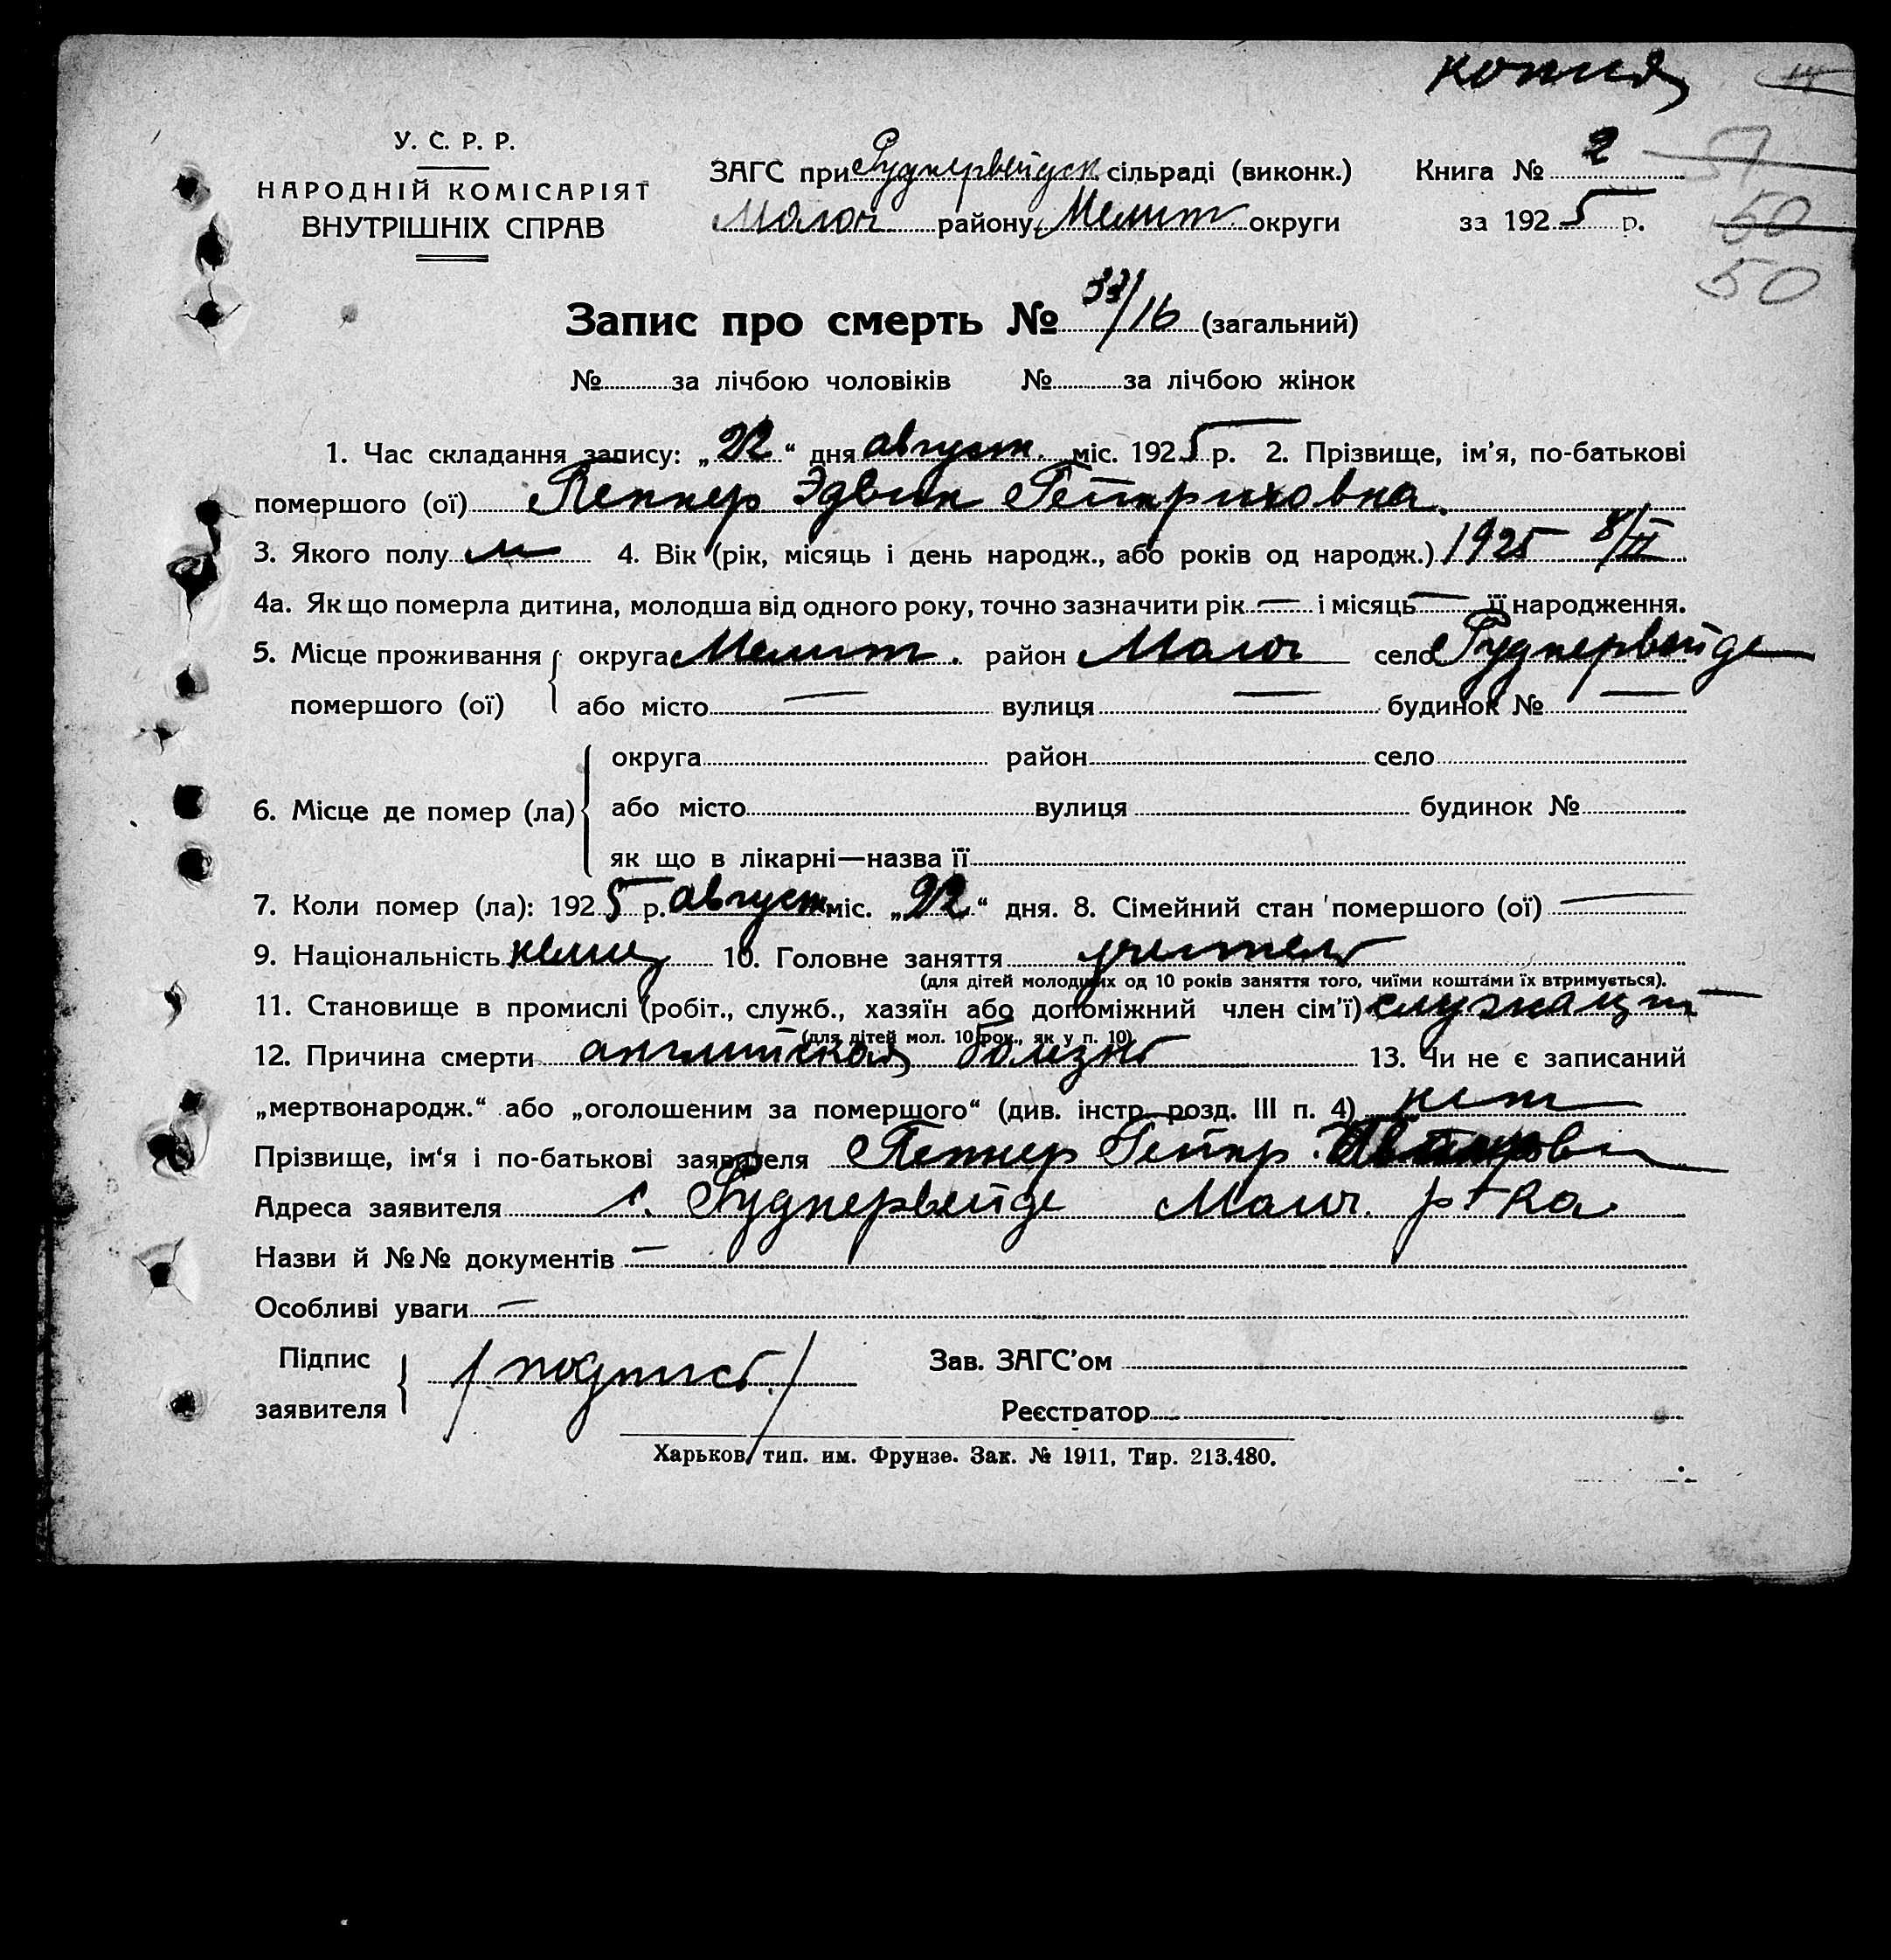 копия
У. С. Р. Р.
НАРОДНІЙ КОМІСАРІЯТ
ВНУТРІШНІХ СПРАВ
ЗАГС при Руднервейдск. сільраді (виконк.)
Молоч района, Мелит. округи
Книга № 2
за 1925 р.
51
50
50
Запис про смерть № /16 (загальний)
№ за лічбою чоловіків № за лічбою жінок
1. Час складання запису: „22“ дня август. міс. 1925 р. 2. Прізвище, ім’я, по-батькові
помершого (ої) Пеннер Эдвин Генриховна.
3. Якого полу м 4. Вік (рік, місяць і день народж., або років од народж.) 1925 8/II
4а. Як що померла дитина, молодша від одного року, точно зазначити рік — і місяць — її народження.
5. Місце проживання помершого (ої) округа Мелит. район Молоч село Руднервейде
або місто — вулиця — будинок № —
6. Місце де помер (ла) округа район село
або місто вулиця будинок №
як що в лікарні—назва її
7. Коли помер (ла): 1925 р. август міс. „22“ дня. 8. Сімейний стан помершого (ої) —
9. Національність немец 10. Головне заняття учитель
(для дітей молодших од 10 років заняття того, чиїми коштами їх втримується).
11. Становище в промислі (робіт., служб., хазяїн або допоміжний член сім’ї) служащий
(для дітей мол. 10 рок., як у п. 10)
12. Причина смерти английская болезнь 13. Чи не є записаний
„мертвонародж.“ або „оголошеним за помершого“ (див. інстр. розд. III п. 4) нет
Прізвище, ім‘я і по-батькові заявителя Пеннер Генр.
Адреса заявителя с. Руднервейде Молоч. р-на
Назви й №№ документів —
Особливі уваги —
Підпис заявителя /подпись/
Зав. ЗАГС’ом
Реєстратор
Харьков, тип. им. Фрунзе. Зак. № 1911, Тир. 213.480.